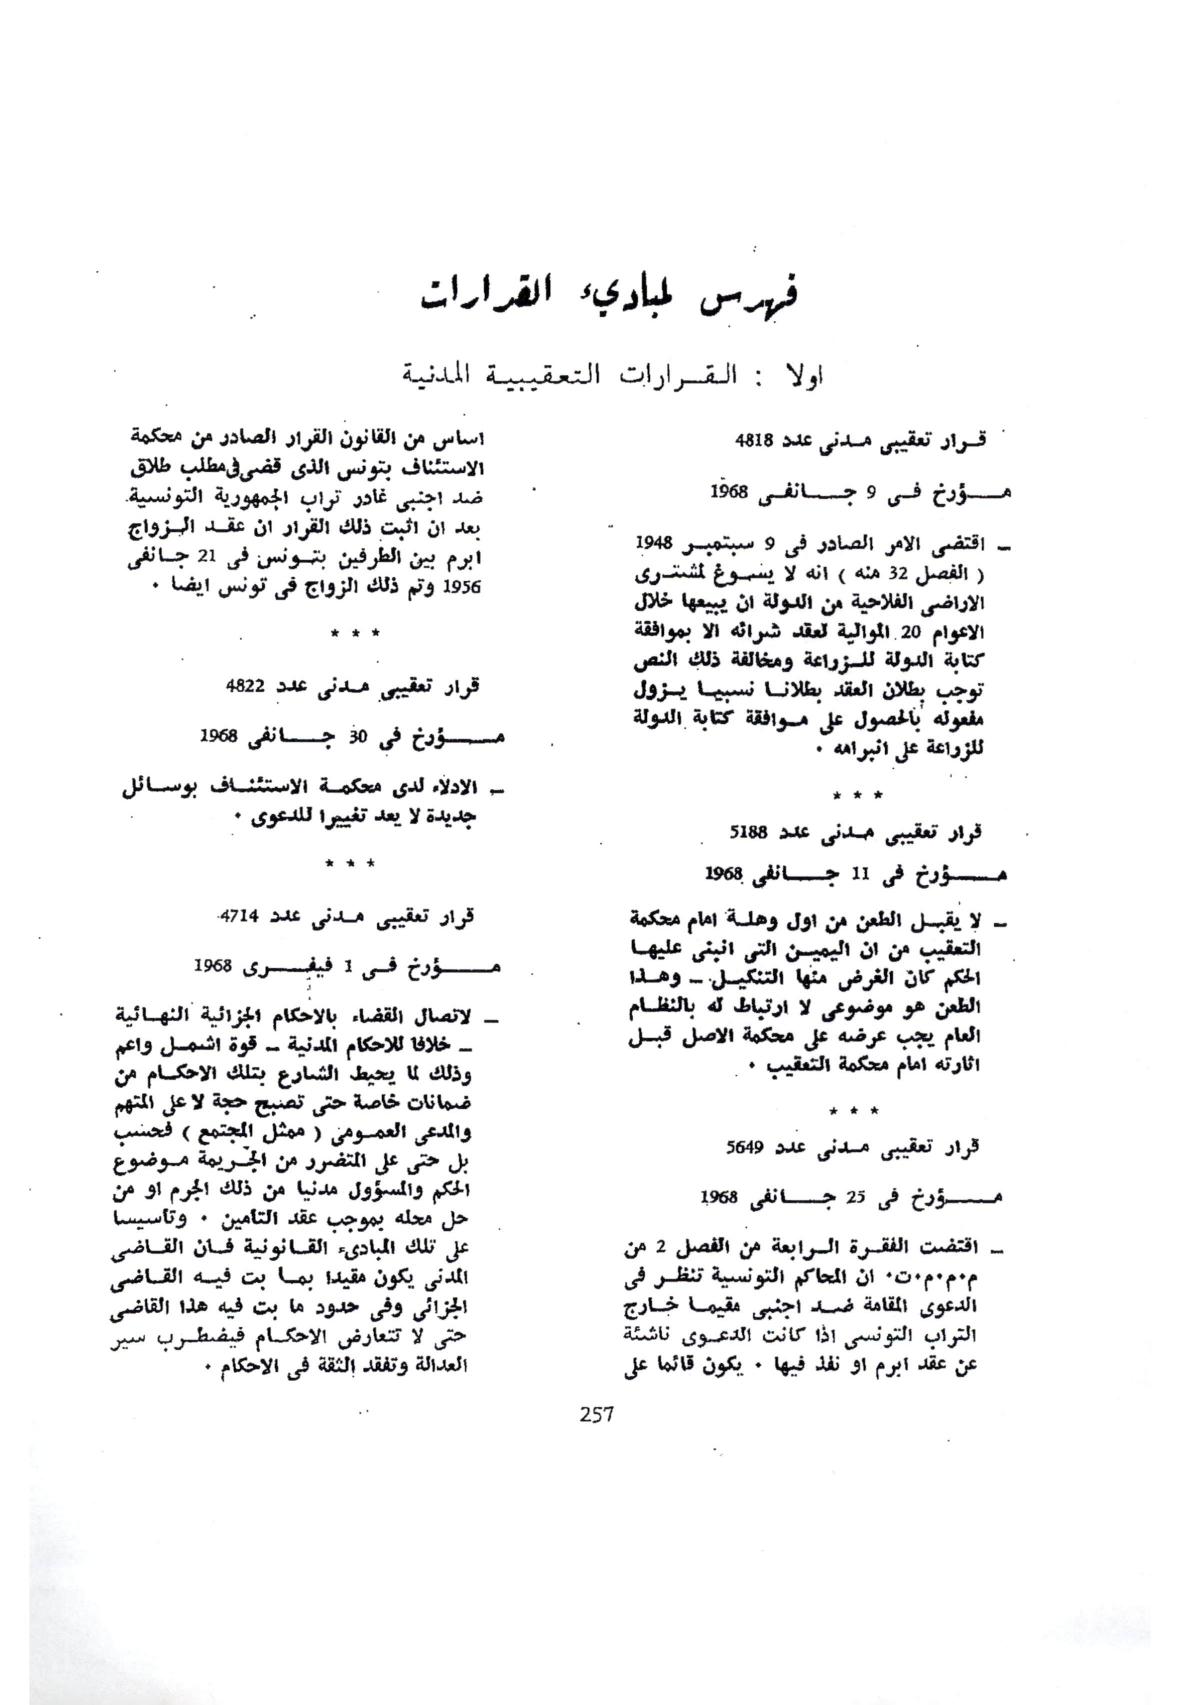 فهرس لمبادىء القرارات
اولا : القرارات التعقيبية المدنية
قرار تعقيبى مدنى عدد 4818
مؤرخ فى 9 جانفى 1968
ـ اقتضى الامر الصادر فى 9 سبتمبر 1948
( الفصل 32 منه ) انه لا يسوغ لمشترى
الاراضى الفلاحية من الدولة ان يبيعها خلال
الاعوام 20 الموالية لعقد شرائه الا بموافقة
كتابة الدولة للزراعة ومخالفة ذلك النص
توجب بطلان العقد بطلانا نسبيا يزول
مفعوله بالحصول على موافقة كتابة الدولة
للزراعة على ابرامه ٠
* * *
قرار تعقيبى مدنى عدد 5188
مؤرخ فى 11 جانفى 1968
ـ لا يقبل الطعن من اول وهلة امام محكمة
التعقيب من ان اليمين التى انبنى عليها
الحكم كان الغرض منها التنكيل ـ وهذا
الطعن هو موضوعى لا ارتباط له بالنظام
العام يجب عرضه على محكمة الاصل قبل
اثارته امام محكمة التعقيب ٠
* * *
قرار تعقيبى مدنى عدد 5649
مؤرخ فى 25 جانفى 1968
ـ اقتضت الفقرة الرابعة من الفصل 2 من
م٠م٠م٠ت٠ ان المحاكم التونسية تنظر فى
الدعوى المقامة ضد اجنبى مقيما خارج
التراب التونسى اذا كانت الدعوى ناشئة
عن عقد ابرم او نفذ فيها ٠ يكون قائما على
اساس من القانون القرار الصادر من محكمة
الاستئناف بتونس الذى قضى فى مطلب طلاق
ضد اجنبى غادر تراب الجمهورية التونسية
بعد ان اثبت ذلك القرار ان عقد الزواج
ابرم بين الطرفين بتونس فى 21 جانفى
1956 وتم ذلك الزواج فى تونس ايضا ٠
* * *
قرار تعقيبى مدنى عدد 4822
مؤرخ فى 30 جانفى 1968
ـ الادلاء لدى محكمة الاستئناف بوسائل
جديدة لا يعد تغييرا للدعوى ٠
* * *
قرار تعقيبى مدنى عدد 4714
مؤرخ فى 1 فيفرى 1968
ـ لاتصال القضاء بالاحكام الجزائية النهائية
ـ خلافا للاحكام المدنية ـ قوة اشمل واعم
وذلك لما يحيط الشارع بتلك الاحكام من
ضمانات خاصة حتى تصبح حجة لا على المتهم
والمدعى العمومى ( ممثل المجتمع ) فحسب
بل حتى على المتضرر من الجريمة موضوع
الحكم والمسؤول مدنيا من ذلك الجرم او من
حل محله بموجب عقد التامين ٠ وتاسيسا
على تلك المبادىء القانونية فان القاضى
المدنى يكون مقيدا بما بت فيه القاضى
الجزائى وفى حدود ما بت فيه هذا القاضى
حتى لا تتعارض الاحكام فيضطرب سير
العدالة وتفقد الثقة فى الاحكام ٠
257